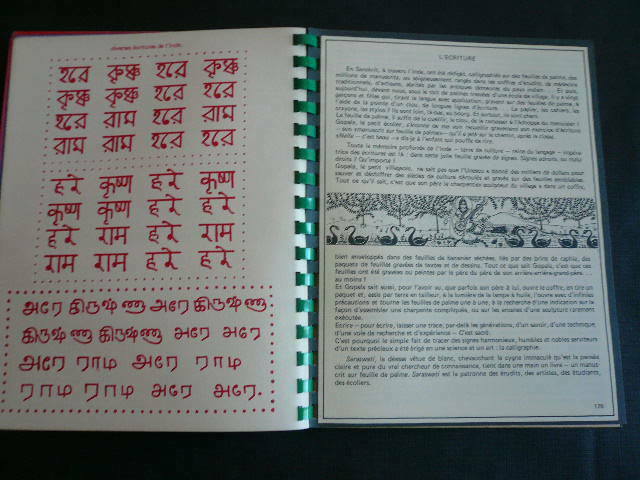 diverses écritures de l'Inde.
হরে কৃষ্ণ হরে কৃষ্ণ
কৃষ্ণ কৃষ্ণ হরে হরে
হরে রাম হরে রাম
রাম রাম হরে হরে
हरे कृष्ण हरे कृष्ण
कृष्ण कृष्ण हरे हरे
हरे राम हरे राम
राम राम हरे हरे
அரே கிருஷ்ணு அரே கிருஷ்ணு
கிருஷ்ணு கிருஷ்ணு அரே அரே
அரே ராம அரே ராம
ராம ராம அரே அரே.
L'ECRITURE
En Sanskrit, à travers l'Inde, ont été rédigés, calligraphiés sur des feuilles de palme, des
millions de manuscrits, soigneusement rangés dans les coffres d'érudits, de médecins
traditionnels, d'artisans, abrités par les antiques demeures du pays indien. Et puis,
aujourd'hui, devant nous, sous le toit de palmes tressées d'une école de village, il y a vingt
garçons et filles qui gravent la langue avec application, gravent sur des feuilles de palme, à
l'aide de la pointe d'un clou, de longues lignes d'écriture. Le papier, les cahiers, les
crayons, les stylos ? Ils sont loin, là-bas, au bourg. Et surtout, ils sont chers.
La feuille de palme, il suffit de la cueillir, le clou, de le ramasser à l'échoppe du menuisier !
Gopala, le petit écolier, s'étonne de me voir recueillir gravement son exercice d'écriture
« son manuscrit sur feuille de palmes » qu'il a jeté sur le chemin, après la classe.
« Mais, c'est beau ! » dis-je à l'enfant qui pouffe de rire.
Toute la mémoire profonde de l'Inde « terre de culture » reine du langage inspira-
trice des écritures est là : dans cette jolie feuille gravée de signes. Signes adroits, ou mala-
droits ? Qu'importe !
Gopala, le petit villageois, ne sait pas que l'Unesco a donné des milliers de dollars pour
sauver et déchiffrer des siècles de culture dénoués et gravés sur des feuilles semblables.
Tout ce qu'il sait, c'est que son père le charpentier-sculpteur du village a dans un coffre,
bien enveloppés dans des feuilles de bananier séchées, liés par des brins de raphia, des
paquets de feuilles gravées de textes et de dessins. Tout ce que sait Gopala, c'est que ces
feuilles ont été gravées ou peintes par le père du père de son arrière-arrière-grand-père . . .
au moins !
Et Gopala sait aussi, pour l'avoir vu, que parfois son père à lui, ouvre le coffre, en tire un
paquet et, assis par terre en tailleur, à la lumière de la lampe à huile, l'ouvre avec d'infinies
précautions et tourne les feuilles de palme une à une, à la recherche d'une indication sur la
façon d'assembler une charpente compliquée, ou sur les ornements d'une sculpture rarement
exécutée.
Ecrire – pour écrire, laisser une trace, par-delà les générations, d'un savoir, d'une technique,
d'une voie de recherche et d'expérience – C'est sacré.
C'est pourquoi le simple fait de tracer des signes harmonieux, humbles et nobles serviteurs
d'un texte précieux a été érigé en une science et un art : la calligraphie.
Saraswati, la déesse vêtue de blanc, chevauchant le cygne immaculé qu'est la pensée
claire et pure du vrai chercheur de connaissance, tient dans une main un livre – un manus-
crit sur feuille de palme. Saraswati est la patronne des érudits, des artistes, des étudiants,
des écoliers.